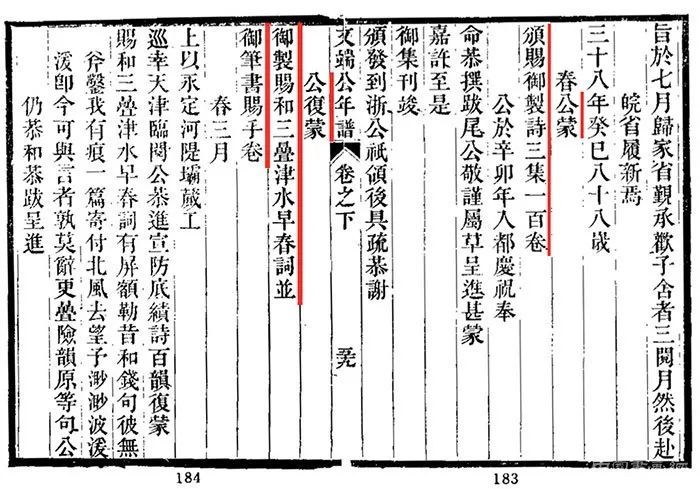 旨於七月歸家省覲承歡子舍者三閱月然後赴
皖省履新焉
三十八年癸巳八十八歲
春公蒙
頒賜御製詩三集一百卷
公於辛卯年入都慶祝奉
命恭撰跋尾公敬謹屬草呈進甚蒙
嘉許至是
御集刊竣
頒發到浙公祇領後具疏恭謝
文端公年譜 卷之下 芫
公復蒙
御製賜和三疊津水早春詞並
御筆書賜手卷
春三月
上以永定河隄壩蕆工
巡幸天津臨閱公恭進宣防底績詩百韻復蒙
賜和三疊津水早春詞有屏額勒昔和錢句彼無
斧鑿我有痕一篇寄付北風去望子渺渺波湲
湲卽今可與言者孰莫辭更疊險韻原等句公
仍恭和恭跋呈進
184
183